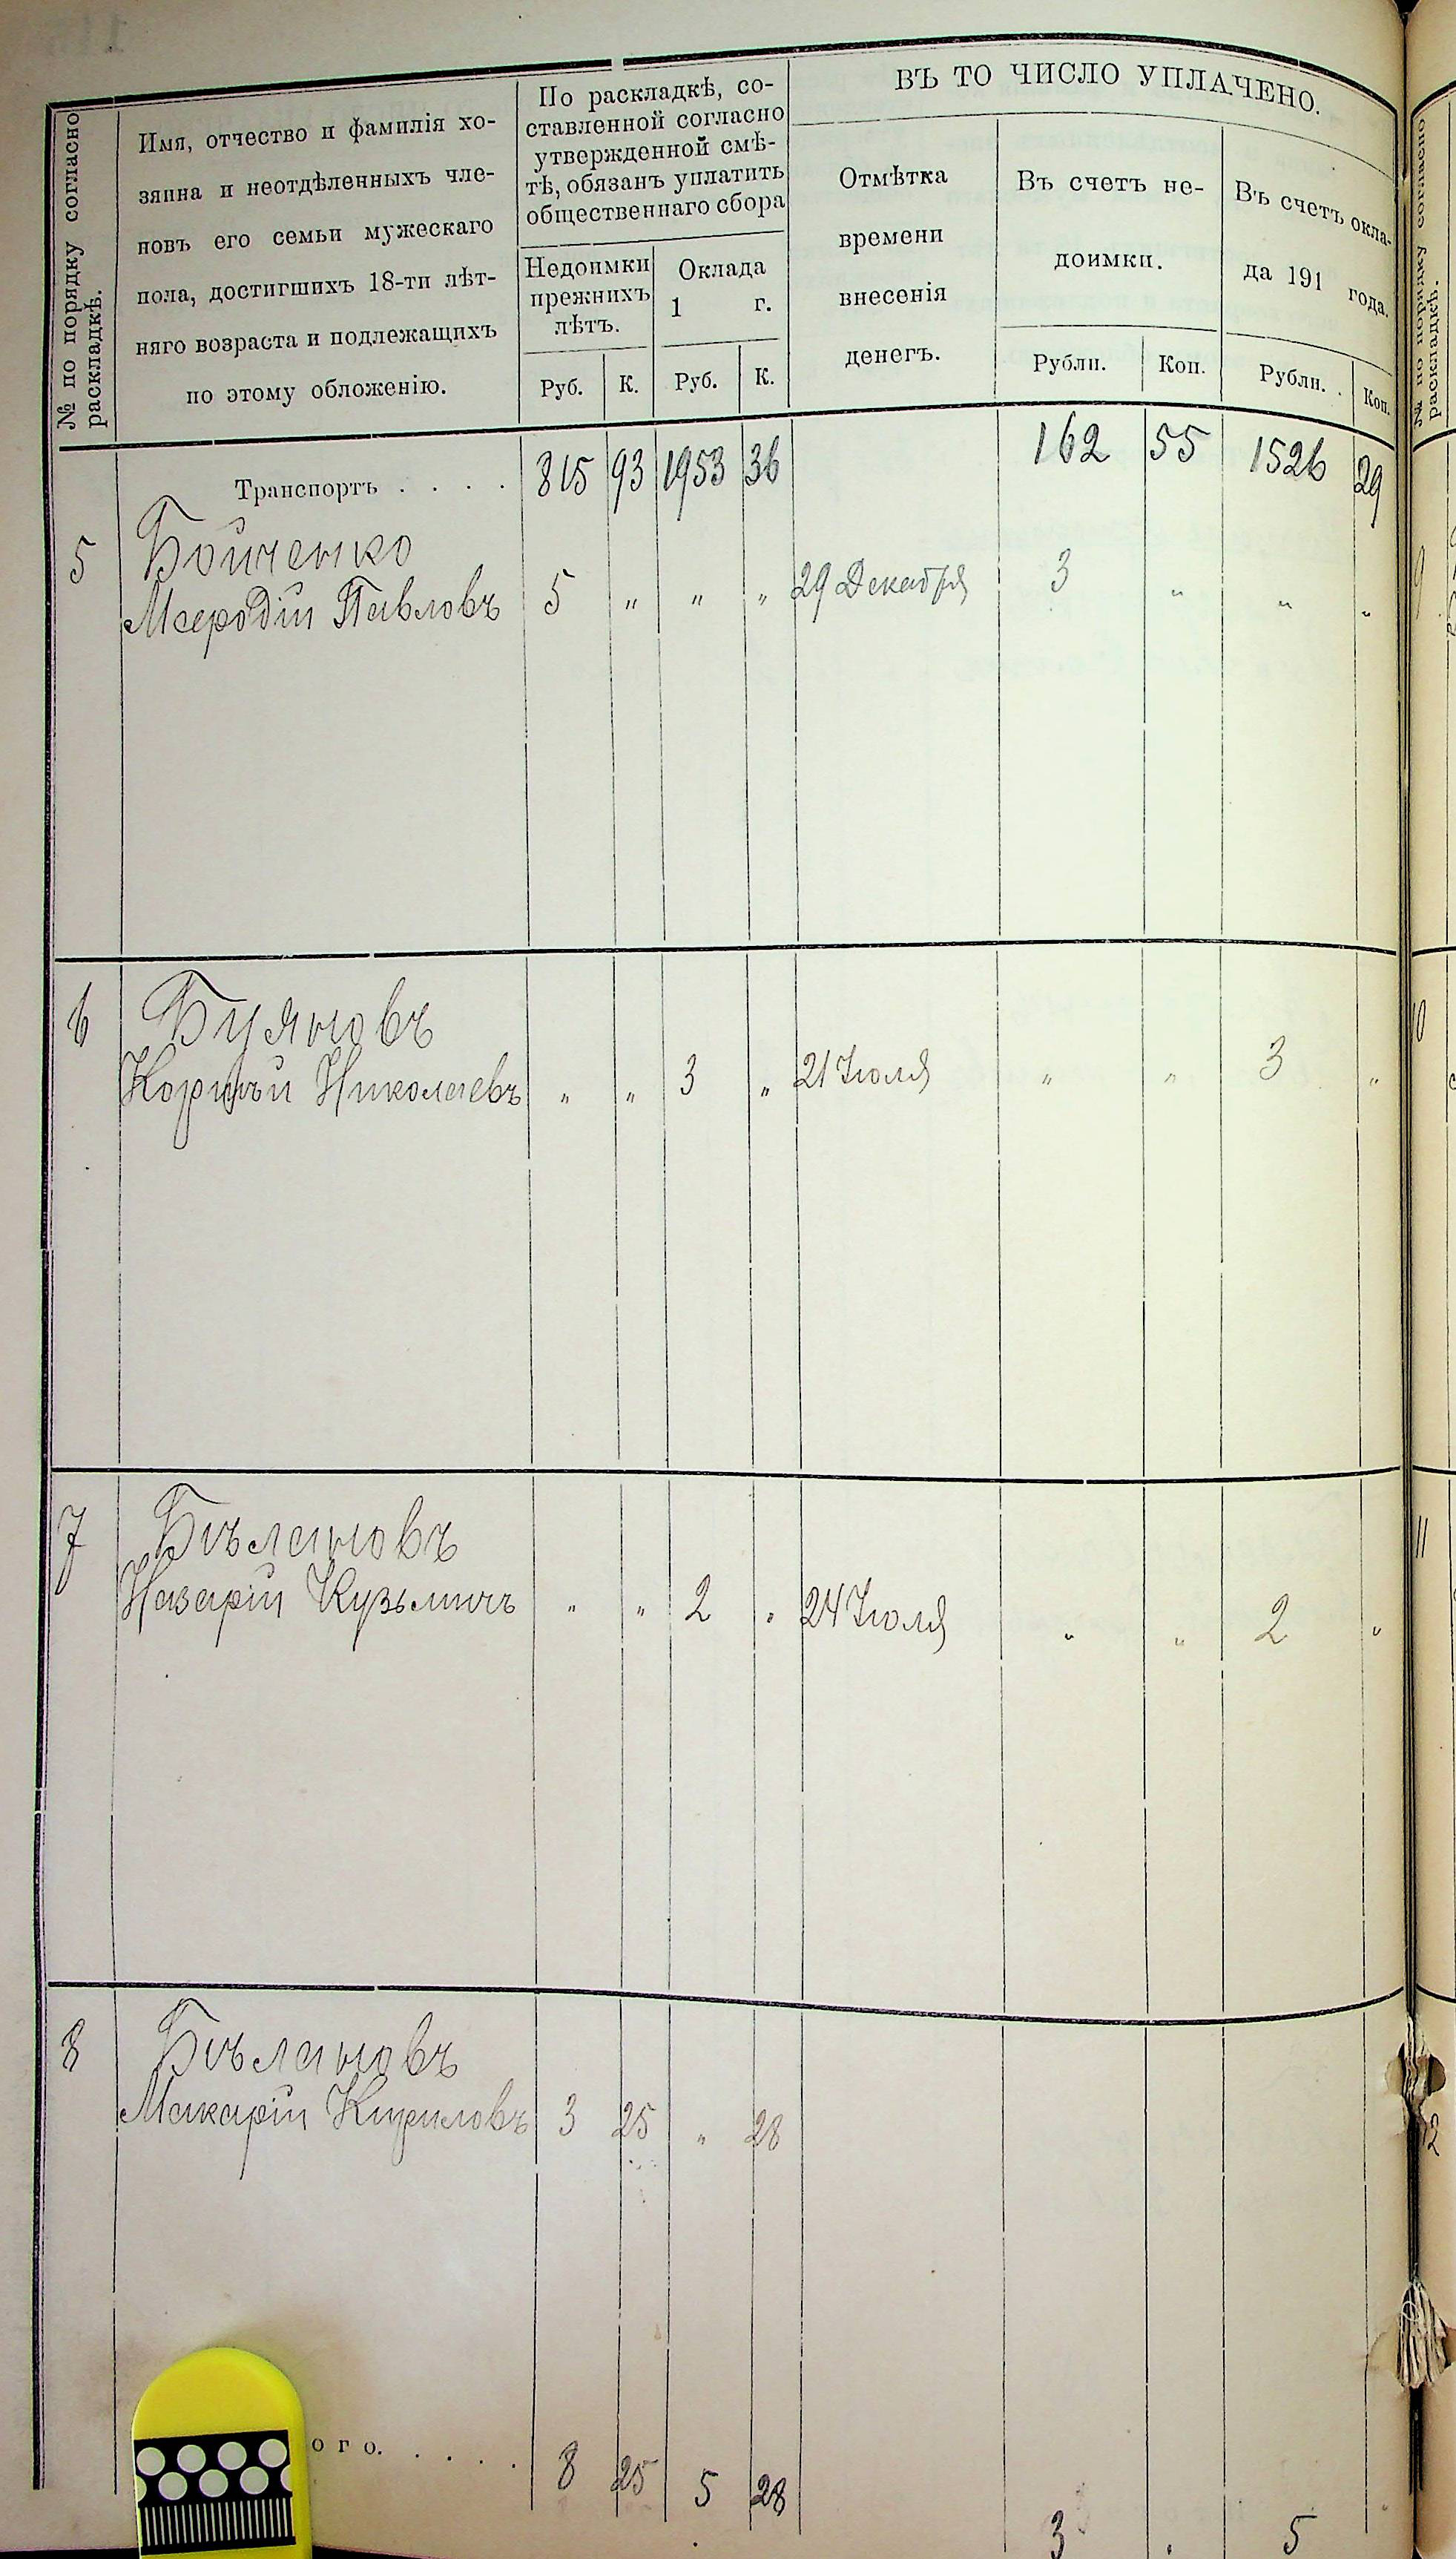 № по порядку согласно
раскладкѣ.
Имя, отчество и фамилія хо-
зяина и неотдѣленныхъ чле-
новъ его семьи мужескаго
пола, достигшихъ 18-ти лѣт-
няго возраста и подлежащихъ
по этому обложенію.
По раскладкѣ, со-
ставленной согласно
утвержденной смѣ-
тѣ, обязанъ уплатить
общественнаго сбора
Недоимки
прежнихъ
лѣтъ.
Оклада
1 г.
Руб. К. Руб. К.
ВЪ ТО ЧИСЛО УПЛАЧЕНО.
Отмѣтка
времени
внесенія
денегъ.
Въ счетъ не-
доимки.
Рубли. Коп.
Въ счетъ окла-
да 191 года.
Рубли. Коп.
Транспортъ . . . . 815 93 1953 36 162 55 1526 29
5 Бойченко
Павловъ 5 „ „ „ 29 Декабря 3 „ „ „
6 Буяновъ
Корнѣй Николаевъ „ „ 3 „ 21 Іюля „ „ 3 „
7 Бѣлановъ
Назарій Кузьмичъ „ „ 2 „ 24 Іюля „ „ 2 „
8 Бѣлановъ
Макарій Кириловъ 3 25 „ 28
ого. . . . . 8 25 5 28 3 . 5
№ по порядку согласно
раскладкѣ.
9
10
11
12